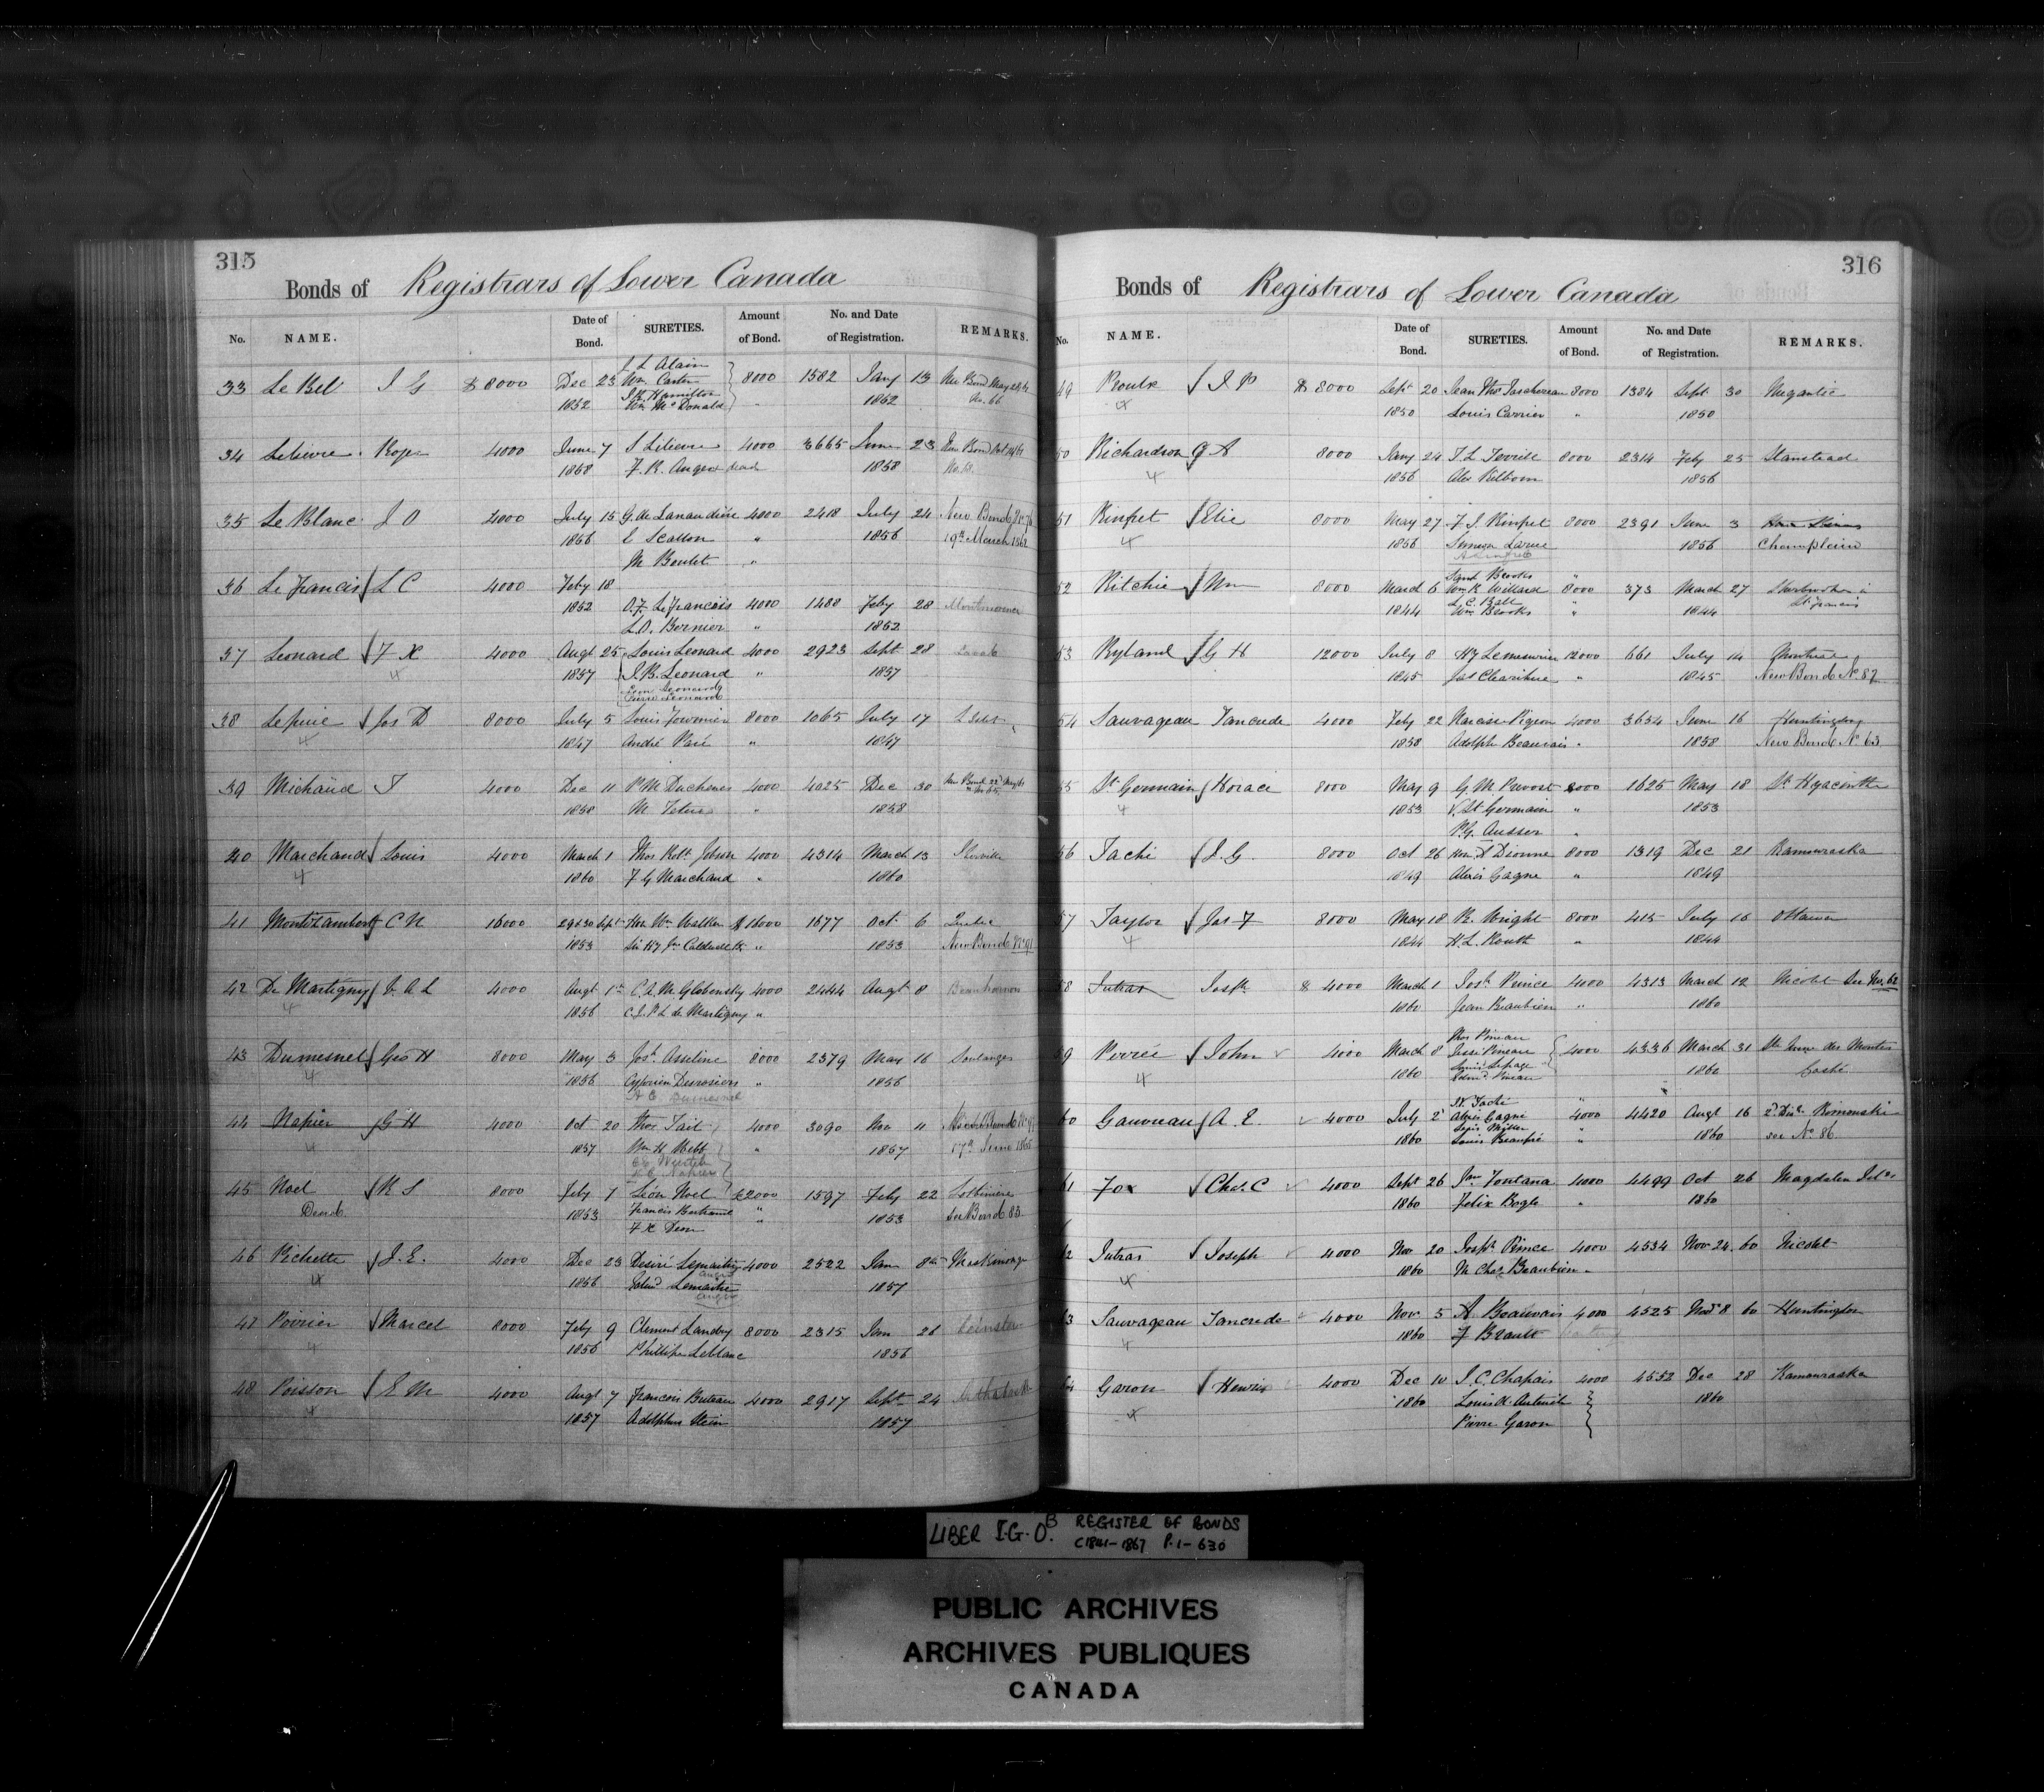 315
Bonds of Registrars of Lower Canada
No. NAME. Date of Bond. SURETIES. Amount of Bond. No. and Date of Registration. REMARKS.
33 Le Bel J G $8000 Dec 23 J L Alain 8000 1582 Jany 13 New Bond May
1852 Wm Carter 1852 No. 66
J R Hamilton
Wm McDonald
34 Lelievre Roger 4000 June 7 S Lelievre 4000 3665 June 23 New Bond Oct
1858 F. R. Anger dead 1858
35 Le Blanc J O 4000 July 15 G. de Lanaudière 4000 2418 July 24 New Bond No 76
1856 E Scallon " 1856 19th March 1862
M Boulet "
36 Le Francis L C 4000 Feby 18
1852 O. F. LeFrancois 4000 1480 Feby 28 Montmorency
L. O. Bernier " 1852
37 Leonard F X 4000 Augt 25 Louis Leonard 4000 2923 Sept 28
4 1857 J. B. Leonard " 1857
Leonard
Pierre Leonard
38 Lepine Jos D 8000 July 5 Louis Fournier 8000 1065 July 17 L'Islet
4 1847 André Paré " 1847
39 Michaud T 4000 Dec 11 P M Duchenes 4000 4025 Dec 30 New Bond 22d May 61
1858 M Teture " 1858 No 65
40 Marchand Louis 4000 March 1 Thos Robt Jobson 4000 4314 March 13 Iberville
4 1860 F G Marchand " 1860
41 Montizambert C N 16000 29 & 30 Sept Hon Wm Walker $16000 1677 Oct. 6 Quebec
1853 Sir Hy Jno Caldwell Bt " 1853 New Bond No 91
42 De Martigny J. A L 4000 Augt 1st C. A. M. Globensky 4000 2444 Augt 8 Beauharnois
4 1856 C. J. P. L de Martigny " 1856
43 Dumesnel Geo H 8000 May 3 Josh. Asseline 8000 2379 May 16 Soulanges
4 1856 Cyprien Desrosiers " 1856
A C Dumesnel
44 Napier G H 4000 Oct 20 Thos Tait 4000 3090 Nov 11
4 1857 Wm H Webb " 1857 17th June 1865
45 Noel R S 8000 Feby 1 Léon Noel £2000 1597 Feby 22 Lotbiniere
Dead 1853 Francis Bertrand " 1853 See Bond 83
F X Dion "
46 Pichette J. E. 4000 Dec 23 Desiré Lemaitre 4000 2522 Jan 8th Maskinongé
4 1856 Lemaitre 1857
47 Poirier Marcel 8000 Feby 9 Clement Landry 8000 2315 Jan 26 Leinster
4 1856 Phillipe Leblanc 1856
48 Poisson E M 4000 Augt 7 Francois Buteau 4000 2917 Sept 24 Arthabaska
4 1857 Adolphus Stein 1857
316
Bonds of Registrars of Lower Canada
No. NAME. Date of Bond. SURETIES. Amount of Bond. No. and Date of Registration. REMARKS.
49 Proulx J. P $8000 Sept 20 Jean Thos Taschereau 8000 1384 Sept 30 Megantic
4 1850 Louis Carrier " 1850
50 Richardson G A 8000 Jany 24 T. L. Terrill 8000 2314 Feby 25 Stanstead
4 1856 Alex Kilborn 1856
51 Rinfret Elie 8000 May 27 F. J. Rinfret 8000 2391 June 3
4 1856 Simeon Larue 1856 Champlain
52 Ritchie Wm 8000 March 6 Saml Brooks " 373 March 27 Sherbrooke
1844 Wm R Willard 8000 1844 St Francis
L. C. Ball "
Wm Brooks "
53 Ryland G H 12000 July 8 Hy Lemesurier 12000 661 July 14 Montreal
1845 Jas Clearihue " 1845 New Bond No 87
54 Sauvageau Tancrede 4000 Feby 22 Narcisse Pigeon 4000 3654 June 16 Huntingdon
1858 Adolphe Beauvais " 1858 New Bond No 63
55 St Germain Horace 8000 May 9 G. M. Prevost 8000 1625 May 18 St Hyacinthe
4 1853 V. St Germain " 1853
P. G. Ausser "
56 Taché J. G. 8000 Oct 26 Hon. A Dionne 8000 1319 Dec 21 Kamouraska
1849 Alexis Gagne " 1849
57 Taylor Jas F 8000 May 18 R. Wright 8000 415 July 15 Ottawa
4 1844 H. L. Routh " 1844
58 Jutras Josph $4000 March 1 Josh Prince 4000 4313 March 12 Nicolet See No. 62
1860 Jean Beaubien " 1860
59 Perrée John 4000 March 8 Thos Pineau 4000 4336 March 31 Ste Anne des Monts
4 1860 Jessé Pineau 1860 Gaspé
Louis Lepage
Edmd. Pineau
60 Gauvreau A. E. 4000 July 2 Taché " 4420 Augt 16 2d Div. Rimouski
1860 Alexis Gagné 4000 1860 see No. 86
Miller "
Louis Beaupré "
61 Fox Chas. C 4000 Sept 26 Jno Fontana 4000 4499 Oct 26 Magdalen Islds
1860 Felix Boyle " 1860
62 Jutras Joseph 4000 Nov 20 Josph Prince 4000 4534 Nov 24. 60 Nicolet
4 1860 M Chas Beaubien "
63 Sauvageau Tancrede 4000 Nov 5 A. Beauvais 4000 4525 Novr 8 60 Huntingdon
4 1860 F Brault
64 Garon Henrie 4000 Dec 10 J. C. Chapais 4000 4552 Dec 28 Kamouraska
4 1860 Louis H. Auteuil 1860
Pierre Garon
LIBER I.G.O.B REGISTER OF BONDS
C1841-1867 P.1-630
PUBLIC ARCHIVES
ARCHIVES PUBLIQUES
CANADA